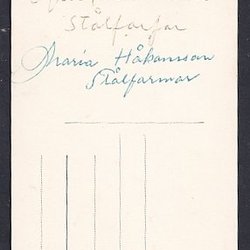 Stålfarfar
Maria Håkansson
Stålfarmor